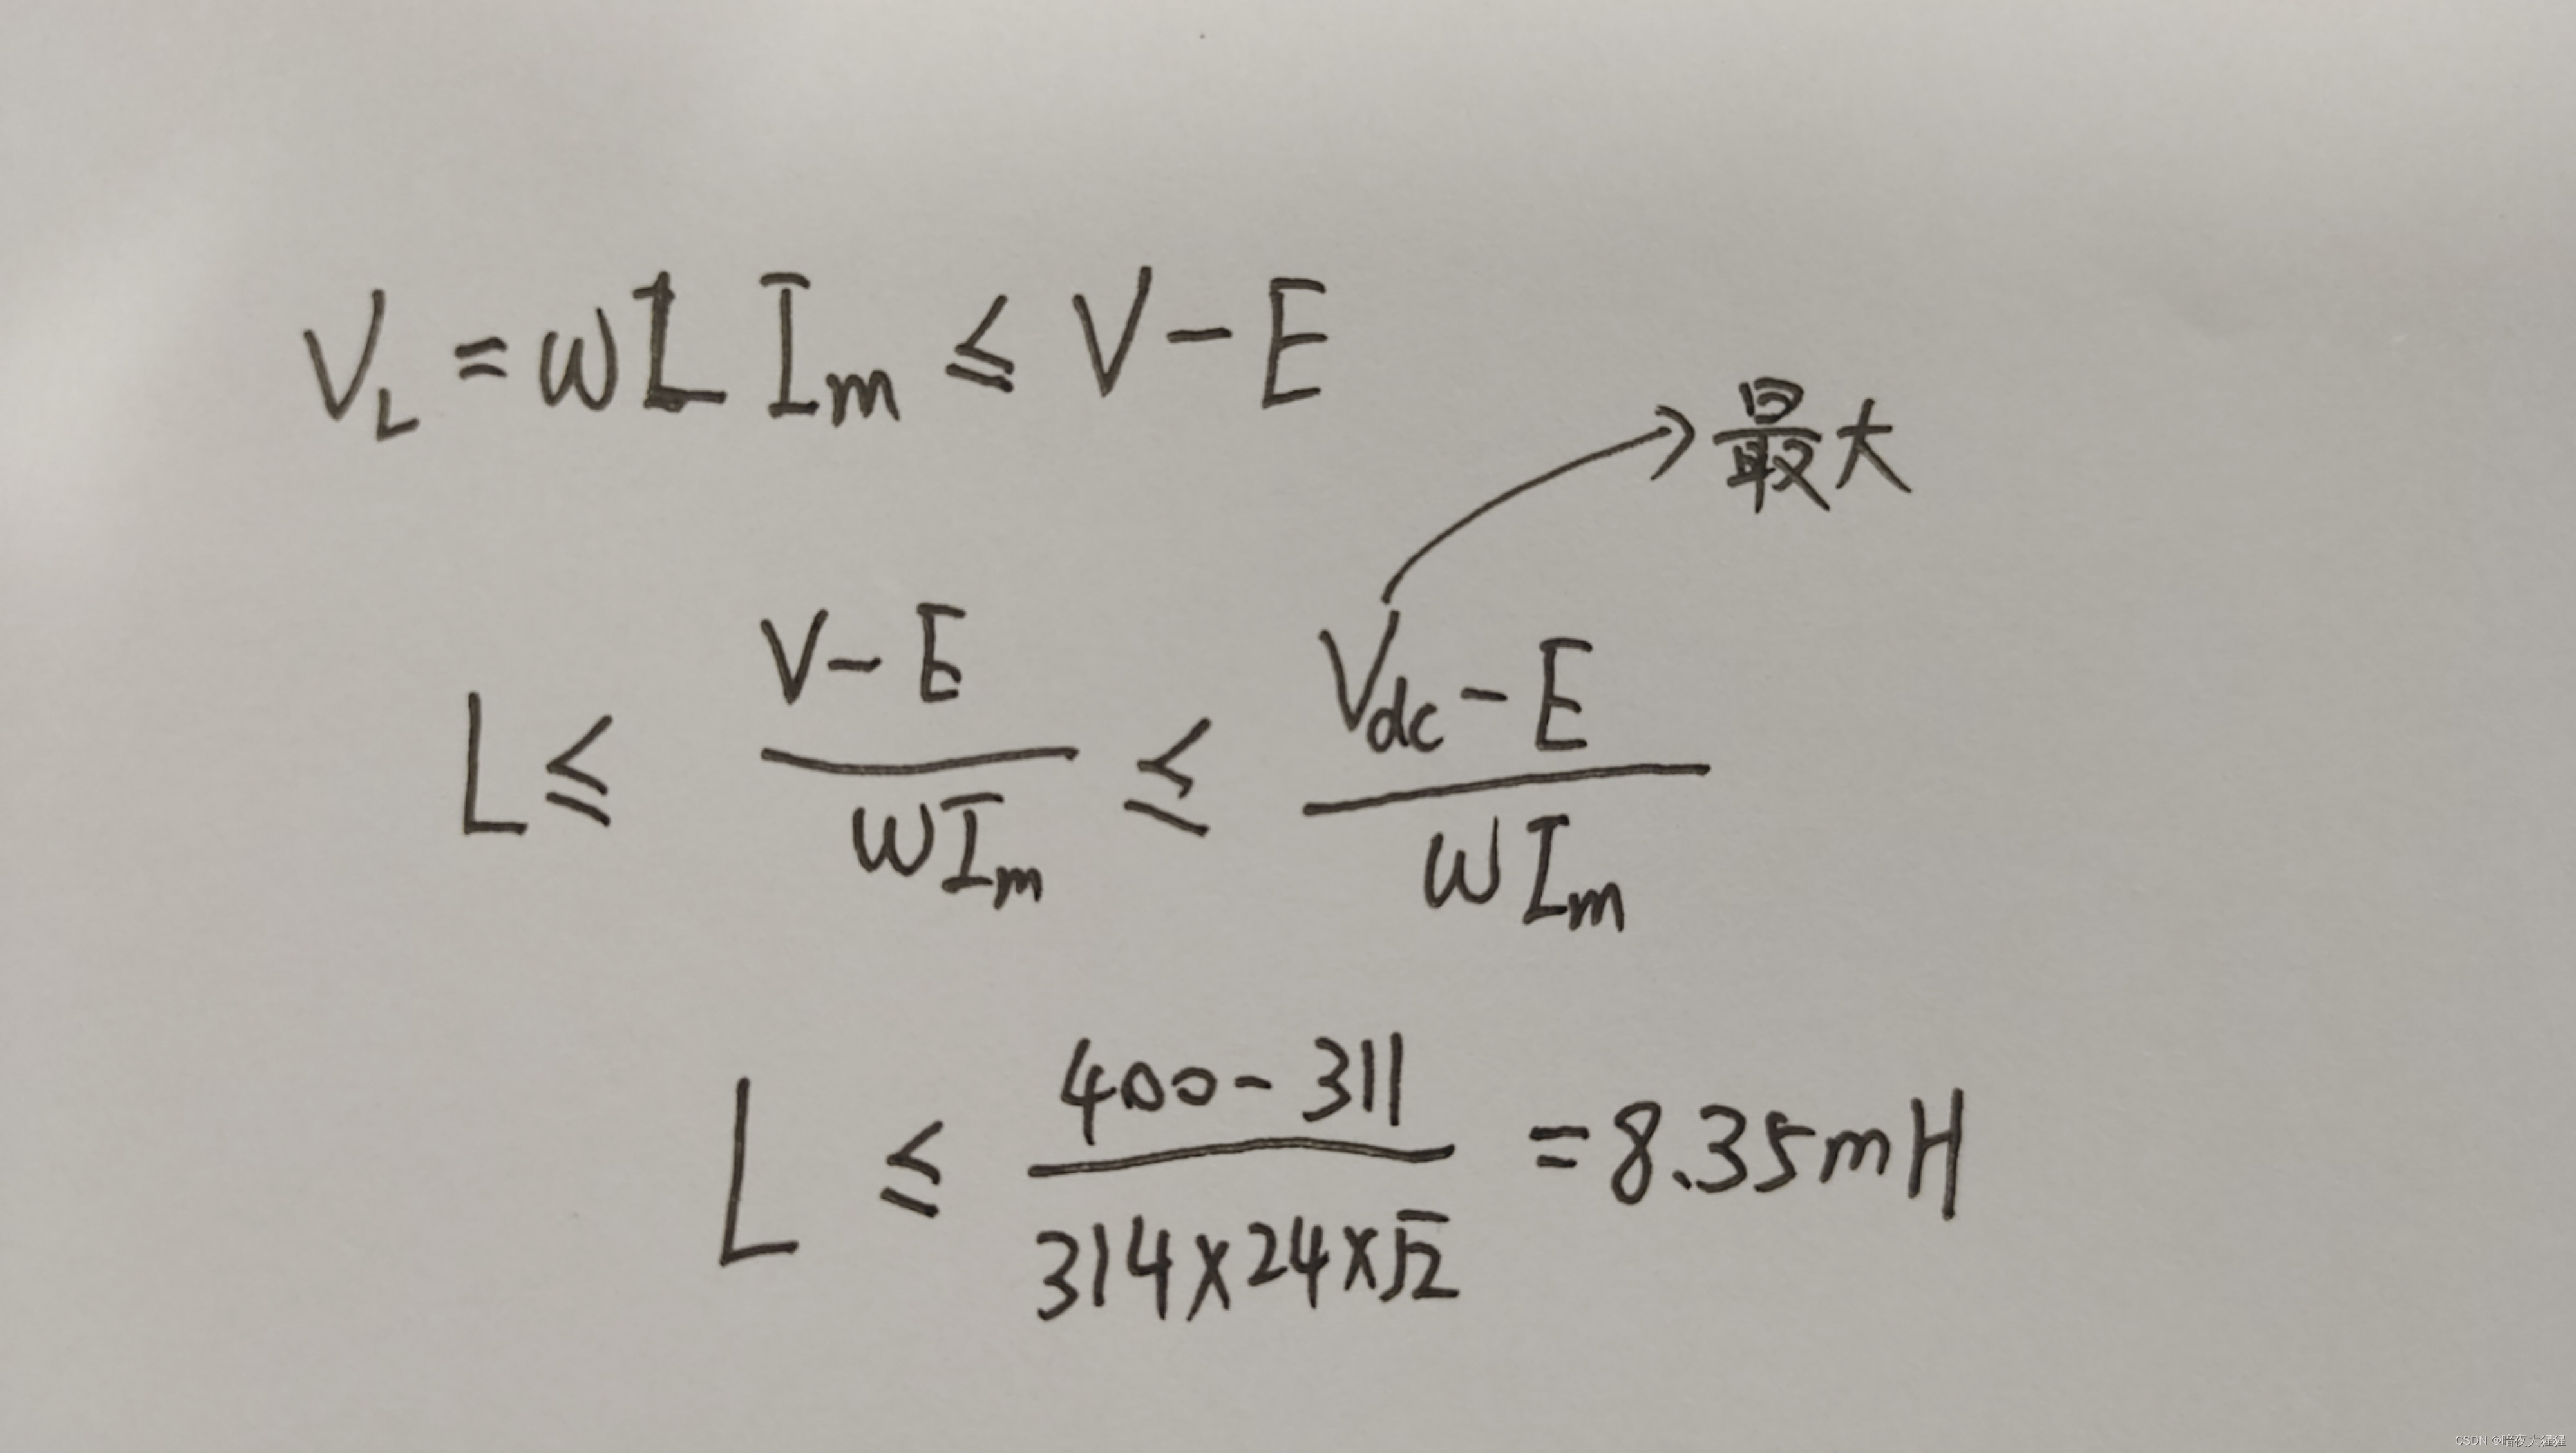 V_L = ωL I_m ≤ V - E
最大
L ≤ (V - E)/(ωI_m) ≤ (V_dc - E)/(ωI_m)
L ≤ (400 - 311)/(314×24×√2) = 8.35mH
CSDN @暗夜大猩猩